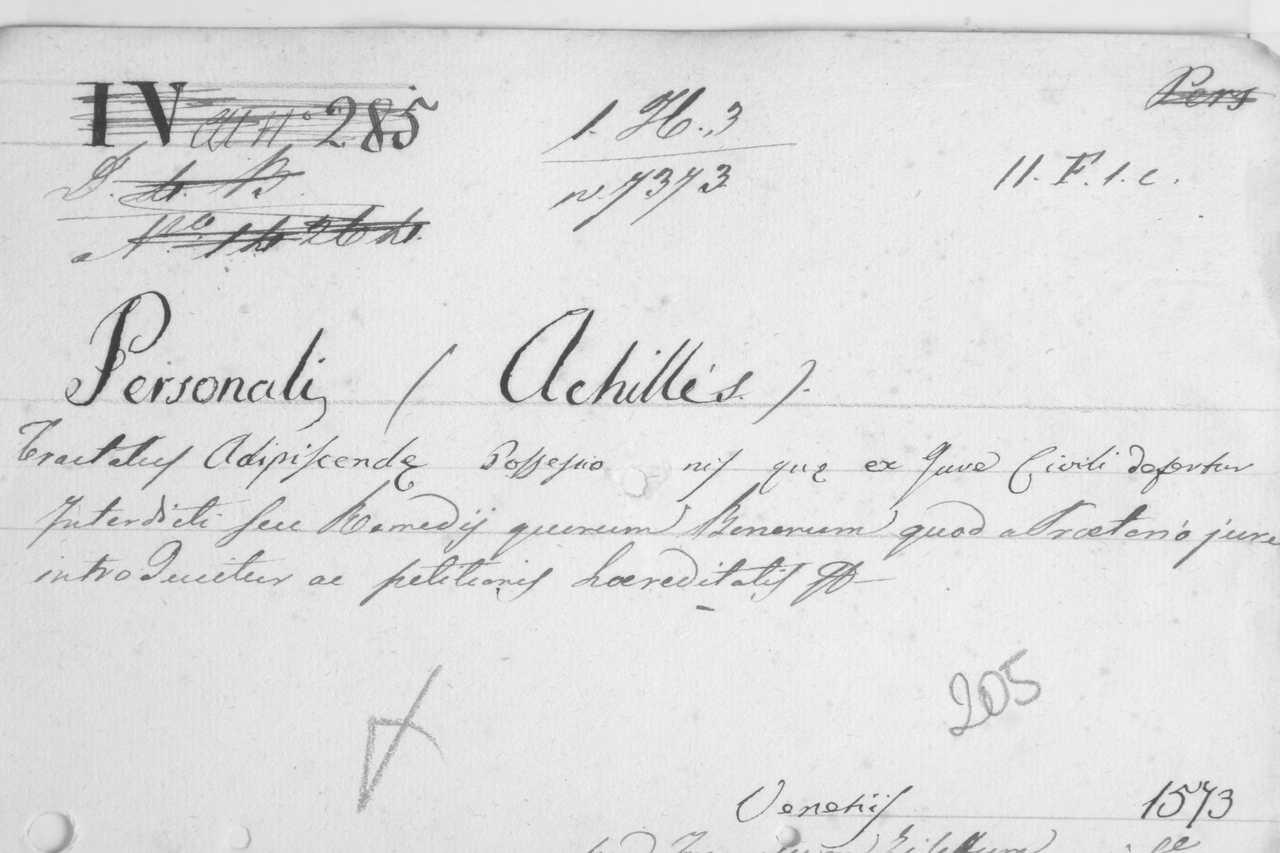 IV 285
Pers
1. H. 3
n. 7373
11. F. 1. c.
D. B.
Personalij (Achilles).
Tractatus Adipiscendę Possessio nis quę ex Jure Civili defertur
Interdicti seu Remedij quorum Bonorum quod a Prætorio jure
introducitur ac petitionis hæreditatis
205
Venetiis 1573